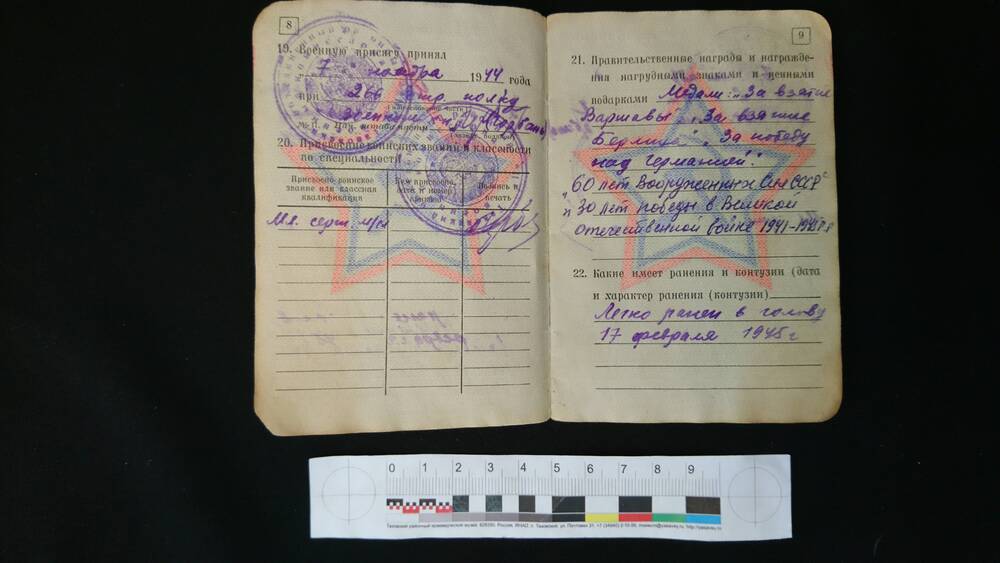 8
19. Военную присягу принял
7 ноября 1944 года
при 266 стр. полку
м. п. Нач. штаба части
20. Присвоение воинских званий и классности
по специальности
Присвоено воинское звание или классная квалификация
Кем присвоено, дата и номер приказа
Подпись и печать
Мл. серж.
9
21. Правительственные награды и награжде-
ния нагрудными знаками и ценными
подарками Медали: „За взятие
Варшавы", „За взятие
Берлина", „За победу
над Германией".
„60 лет Вооруженных Сил СССР"
и 30 лет победы в Великой
отечественной войне 1941-1945 гг
22. Какие имеет ранения и контузии (дата
и характер ранения (контузии)
Легко ранен в голову
17 февраля 1945 г
0 1 2 3 4 5 6 7 8 9
Тазовский районный краеведческий музей, 629350, Россия, ЯНАО, п. Тазовский, ул. Пушкина